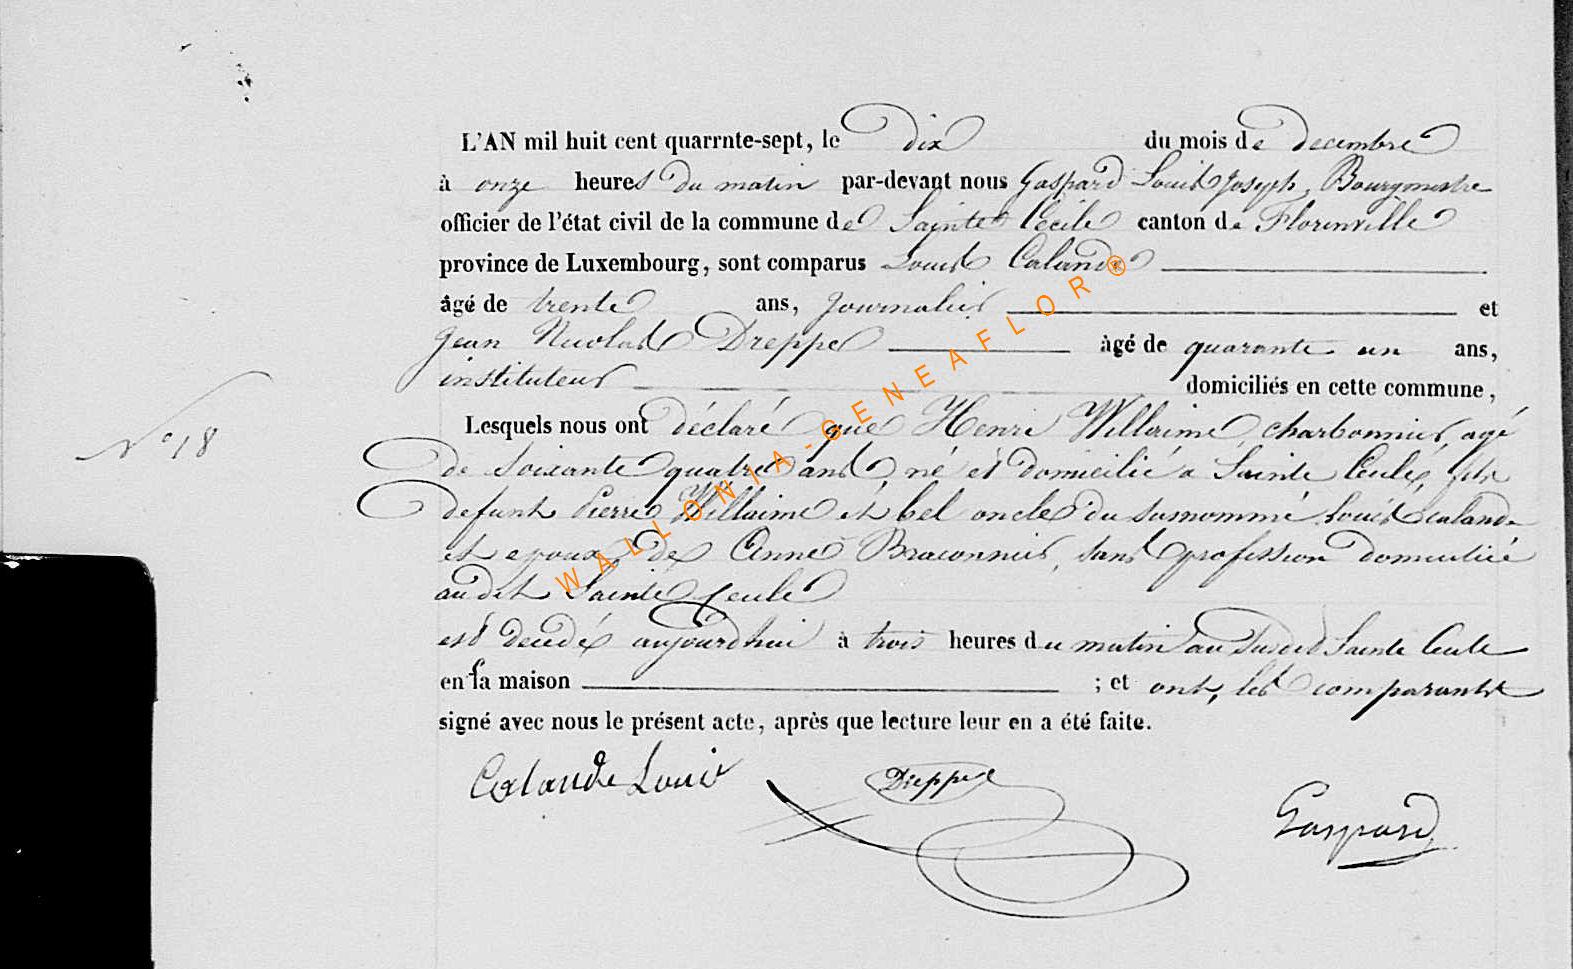 L'AN mil huit cent quarrnte-sept, le dix du mois de decembre
à onze heures du matin par-devant nous Gaspard Louis Joseph, Bourgmestre
officier de l'état civil de la commune de Sainte Cécile canton de Florenville
province de Luxembourg, sont comparus Louis Calande
âgé de trente ans, journalier et
Jean Nicolas Dreppe âgé de quarante un ans,
instituteur domiciliés en cette commune,
Lesquels nous ont déclaré que Henri Willaime, charbonnier, agé
N° 18
de soixante quatre ans, né et domicilié a Sainte Cecile, fils
defunt Pierre Willaime et bel oncle du surnommé Louis Calande
et epoux de Anne Braconnier, sans profession domiciliée
audit Sainte Cecile
est decedé aujourd'hui à trois heures du matin au susdit Sainte Cecile
en sa maison ; et ont, les comparants
signé avec nous le présent acte, après que lecture leur en a été faite.
Calande Louis Dreppe Gaspard
WALLONIA-GENEAFLOR®